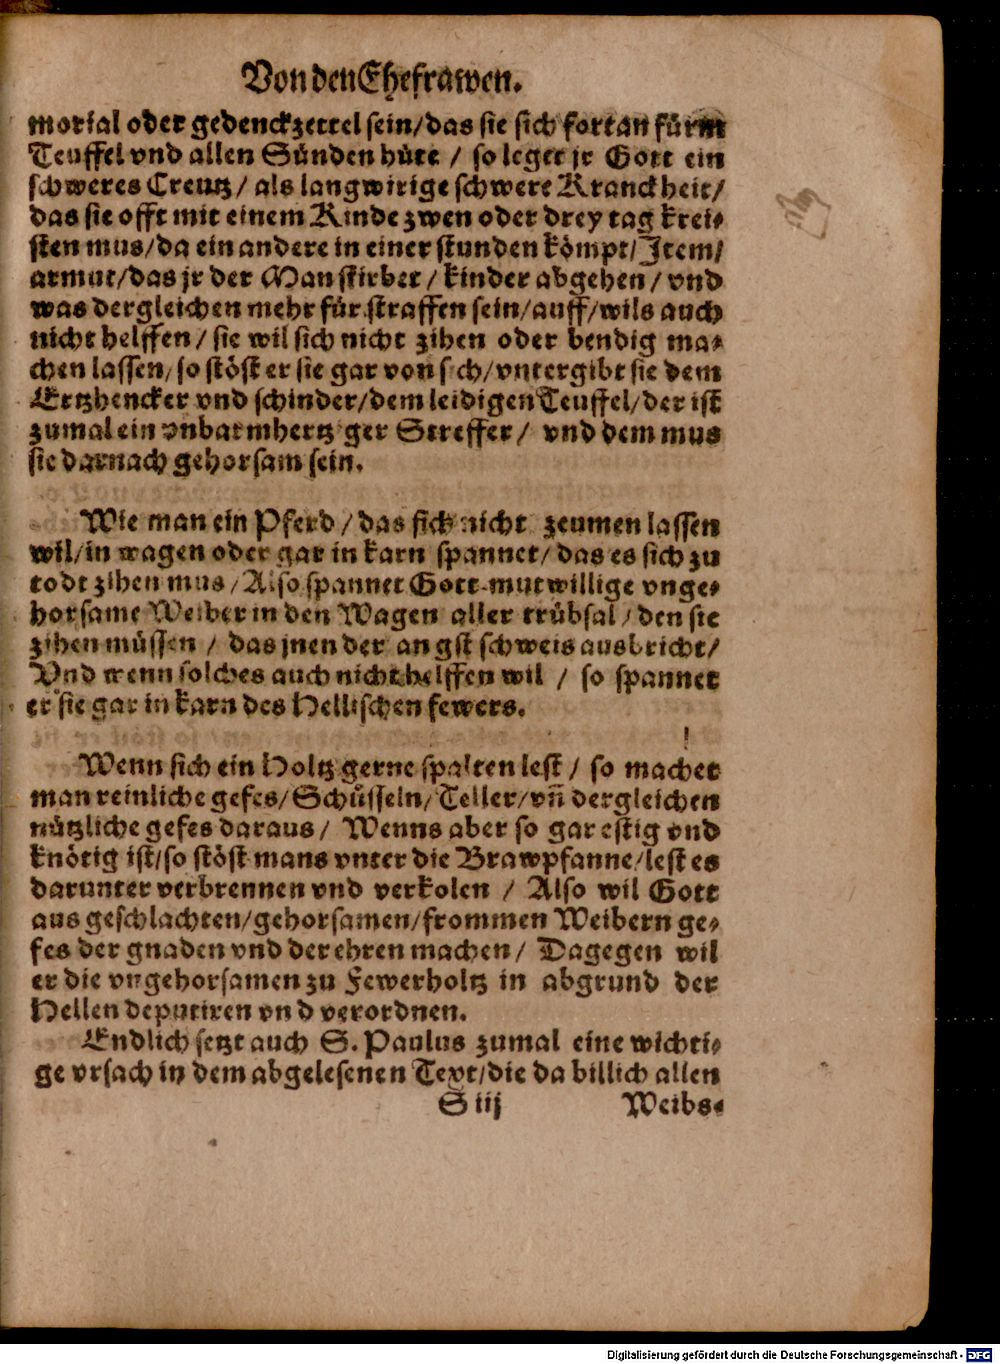 Von den Ehefrawen.
morial oder gedenckzettel sein/das sie sich fortan fürm
Teuffel vnd allen Sünden hüte / so leget jr Gott ein
schweres Creutz/ als langwirige schwere Kranckheit/
das sie offt mit einem Kinde zwen oder drey tag krei⸗
sten mus/da ein andere in einer stunden kömpt/Item/
armut/das jr der Man stirbet / kinder abgehen / vnd
was dergleichen mehr für straffen sein/auff/wils auch
nicht helffen / sie wil sich nicht zihen oder bendig ma⸗
chen lassen/ so stöst er sie gar von sich/vntergibt sie dem
Ertzhencker vnd schinder/dem leidigen Teuffel/der ist
zumal ein vnbarmhertziger Streffer / vnd dem mus
sie darnach gehorsam sein.
Wie man ein Pferd / das sich nicht zeumen lassen
wil/in wagen oder gar in karn spannet/ das es sich zu
todt zihen mus / Also spannet Gott mutwillige vnge⸗
horsame Weiber in den Wagen aller trübsal / den sie
zihen müssen / das jnen der angst schweis ausbricht/
Vnd wenn solches auch nicht helffen wil / so spannet
er sie gar in karn des Hellischen fewers.
Wenn sich ein Holtz gerne spalten lest / so machet
man reinliche gefes/ Schüsseln/ Teller/ vñ dergleichen
nützliche gefes daraus / Wenns aber so gar estig vnd
knötig ist/so stöst mans vnter die Brawpfanne/lest es
darunter verbrennen vnd verkolen / Also wil Gott
aus geschlachten/gehorsamen/frommen Weibern ge⸗
fes der gnaden vnd der ehren machen / Dagegen wil
er die vngehorsamen zu Fewerholtz in abgrund der
Hellen deputiren vnd verordnen.
Endlich setzt auch S. Paulus zumal eine wichti⸗
ge vrsach in dem abgelesenen Text/die da billich allen
S iij Weibs⸗
Digitalisierung gefördert durch die Deutsche Forschungsgemeinschaft - DFG